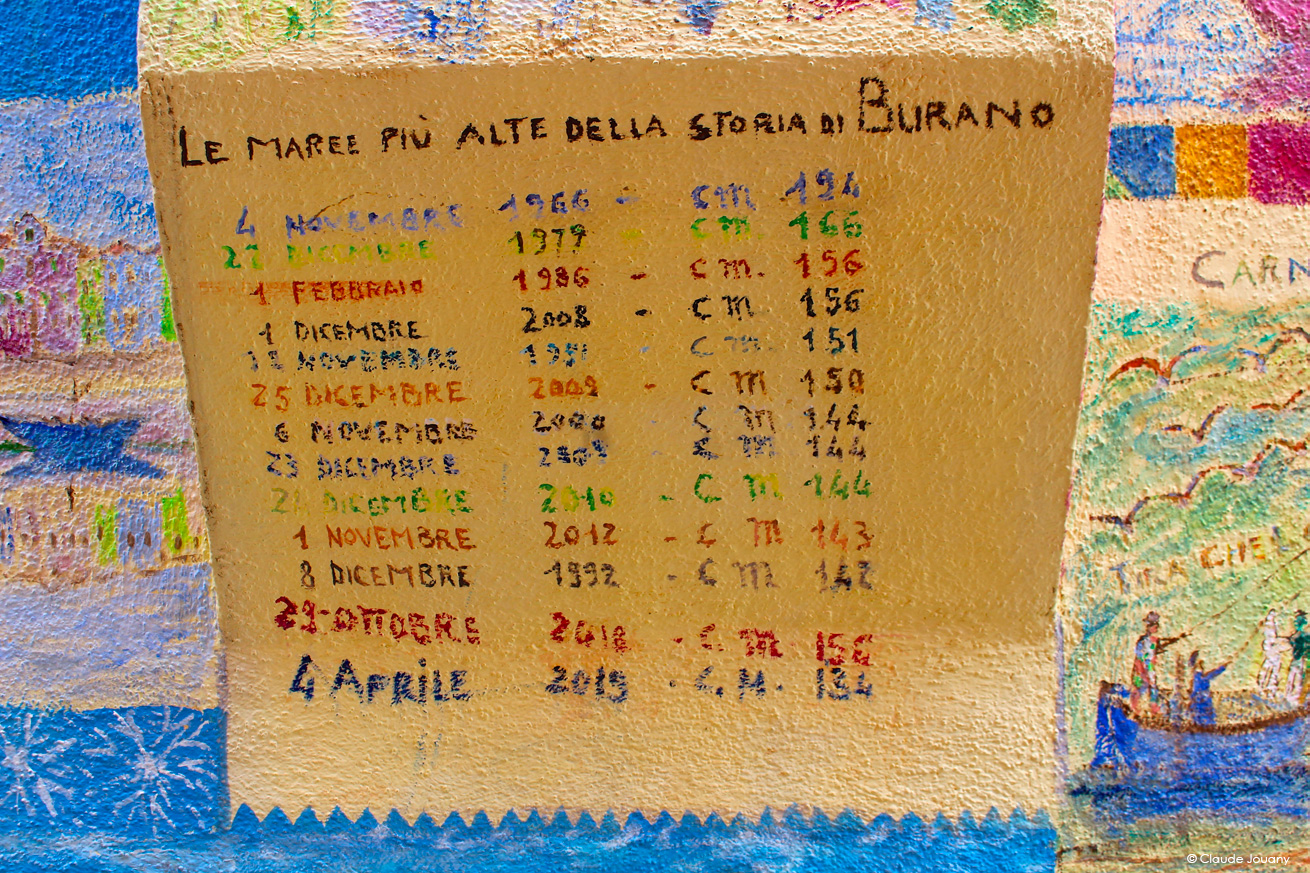 LE MAREE PIÙ ALTE DELLA STORIA DI BURANO
4 NOVEMBRE 1966 - CM. 194
22 DICEMBRE 1979 - CM. 166
1 FEBBRAIO 1986 - CM. 156
1 DICEMBRE 2008 - CM. 156
NOVEMBRE 1951 - CM. 151
25 DICEMBRE 2009 - CM 150
6 NOVEMBRE 2000 CM 144
23 DICEMBRE 2009 - CM 144
24 DICEMBRE 2010 - CM 144
1 NOVEMBRE 2012 - CM 143
8 DICEMBRE 1992 - CM 142
29 OTTOBRE 2018 - C.M 156
4 APRILE 2019 - C.M. 134
CARN
© Claude Jouany